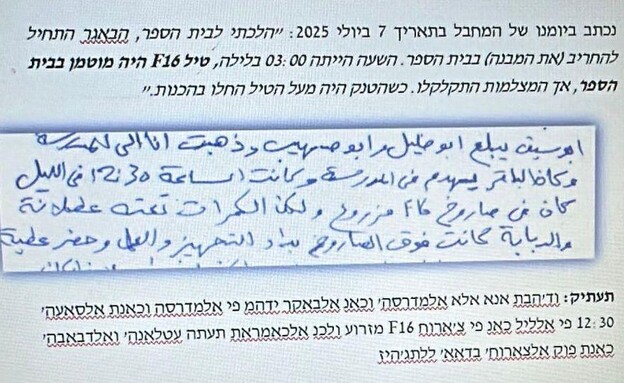 נכתב ביומנו של המחבל בתאריך 7 ביולי 2025: "הלכתי לבית הספר, הבאגר התחיל
להחריב (את המבנה) בבית הספר. השעה הייתה 03:00 בלילה, טיל F16 היה מוטמן בבית
הספר, אך המצלמות התקלקלו. כשהטנק היה מעל הטיל החלו בהכנות."
ابو خليل وابو صهيب وذهبت انا الى المدرسة
وكان الباقر يهدم في المدرسة وكانت الساعة 12:30 في الليل
كان في صاروخ F16 مزروع ولكن الكمرات تعته عطلانة
والدبابة كانت فوق الصاروخ بداء التجهيز والعمل وحضر عطية
תעתיק: וד'הבת אנא אלא אלמדרסה' וכאנ אלבאקר ידהמ פי אלמדרסה וכאנת אלסאעה'
12:30 פי אלליל כאנ פי צ'ארוח F16 מזרוע ולכנ אלכאמראת תעתה עטלאנה' ואלדבאבה'
כאנת פוק אלצארוח' בדאא' ללתג'היז